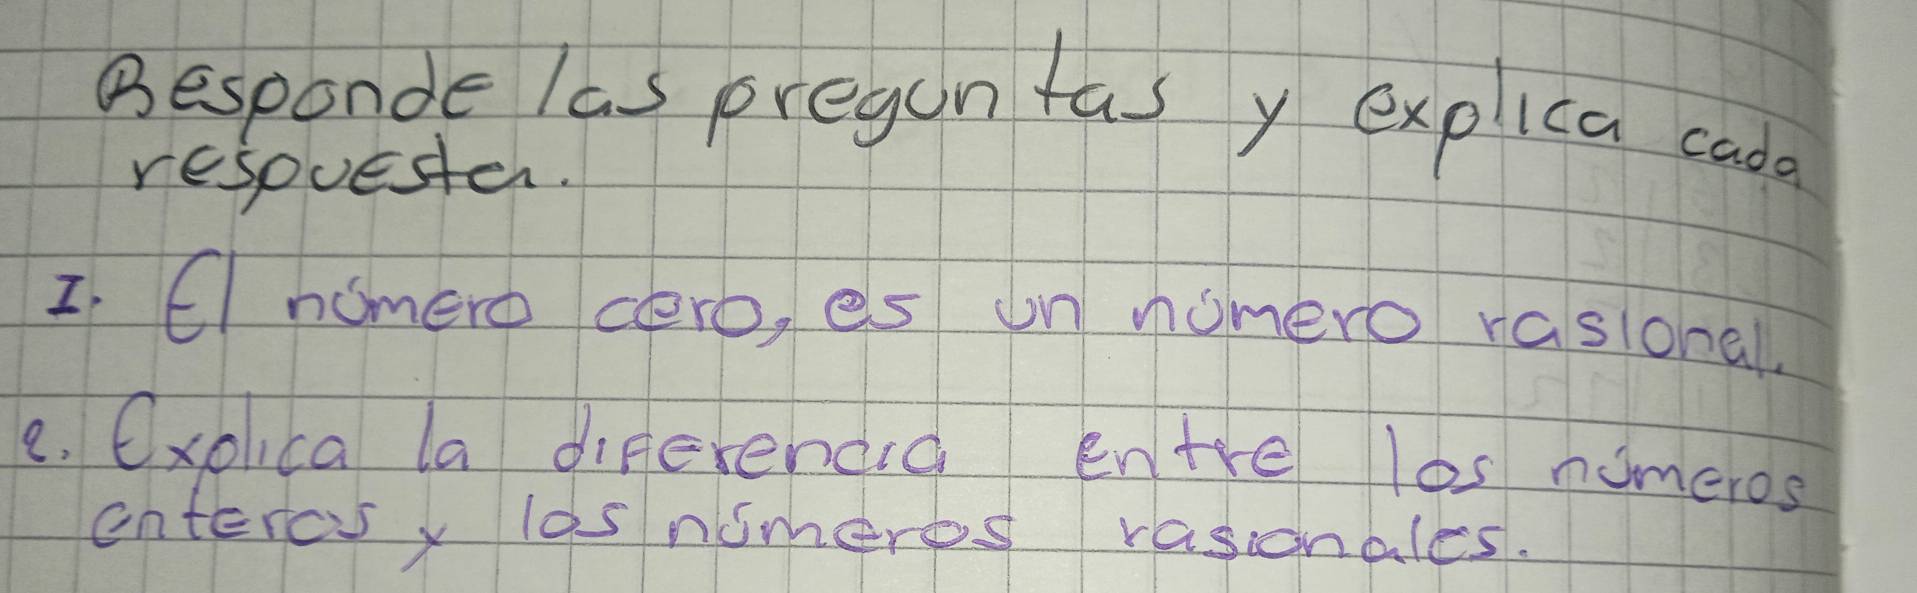 Responde las preguntas y explica cada
respuesta.
I. El número cero, es un número rasional.
2. Explica la diferencia entre los números
enteros y los números rasionales.